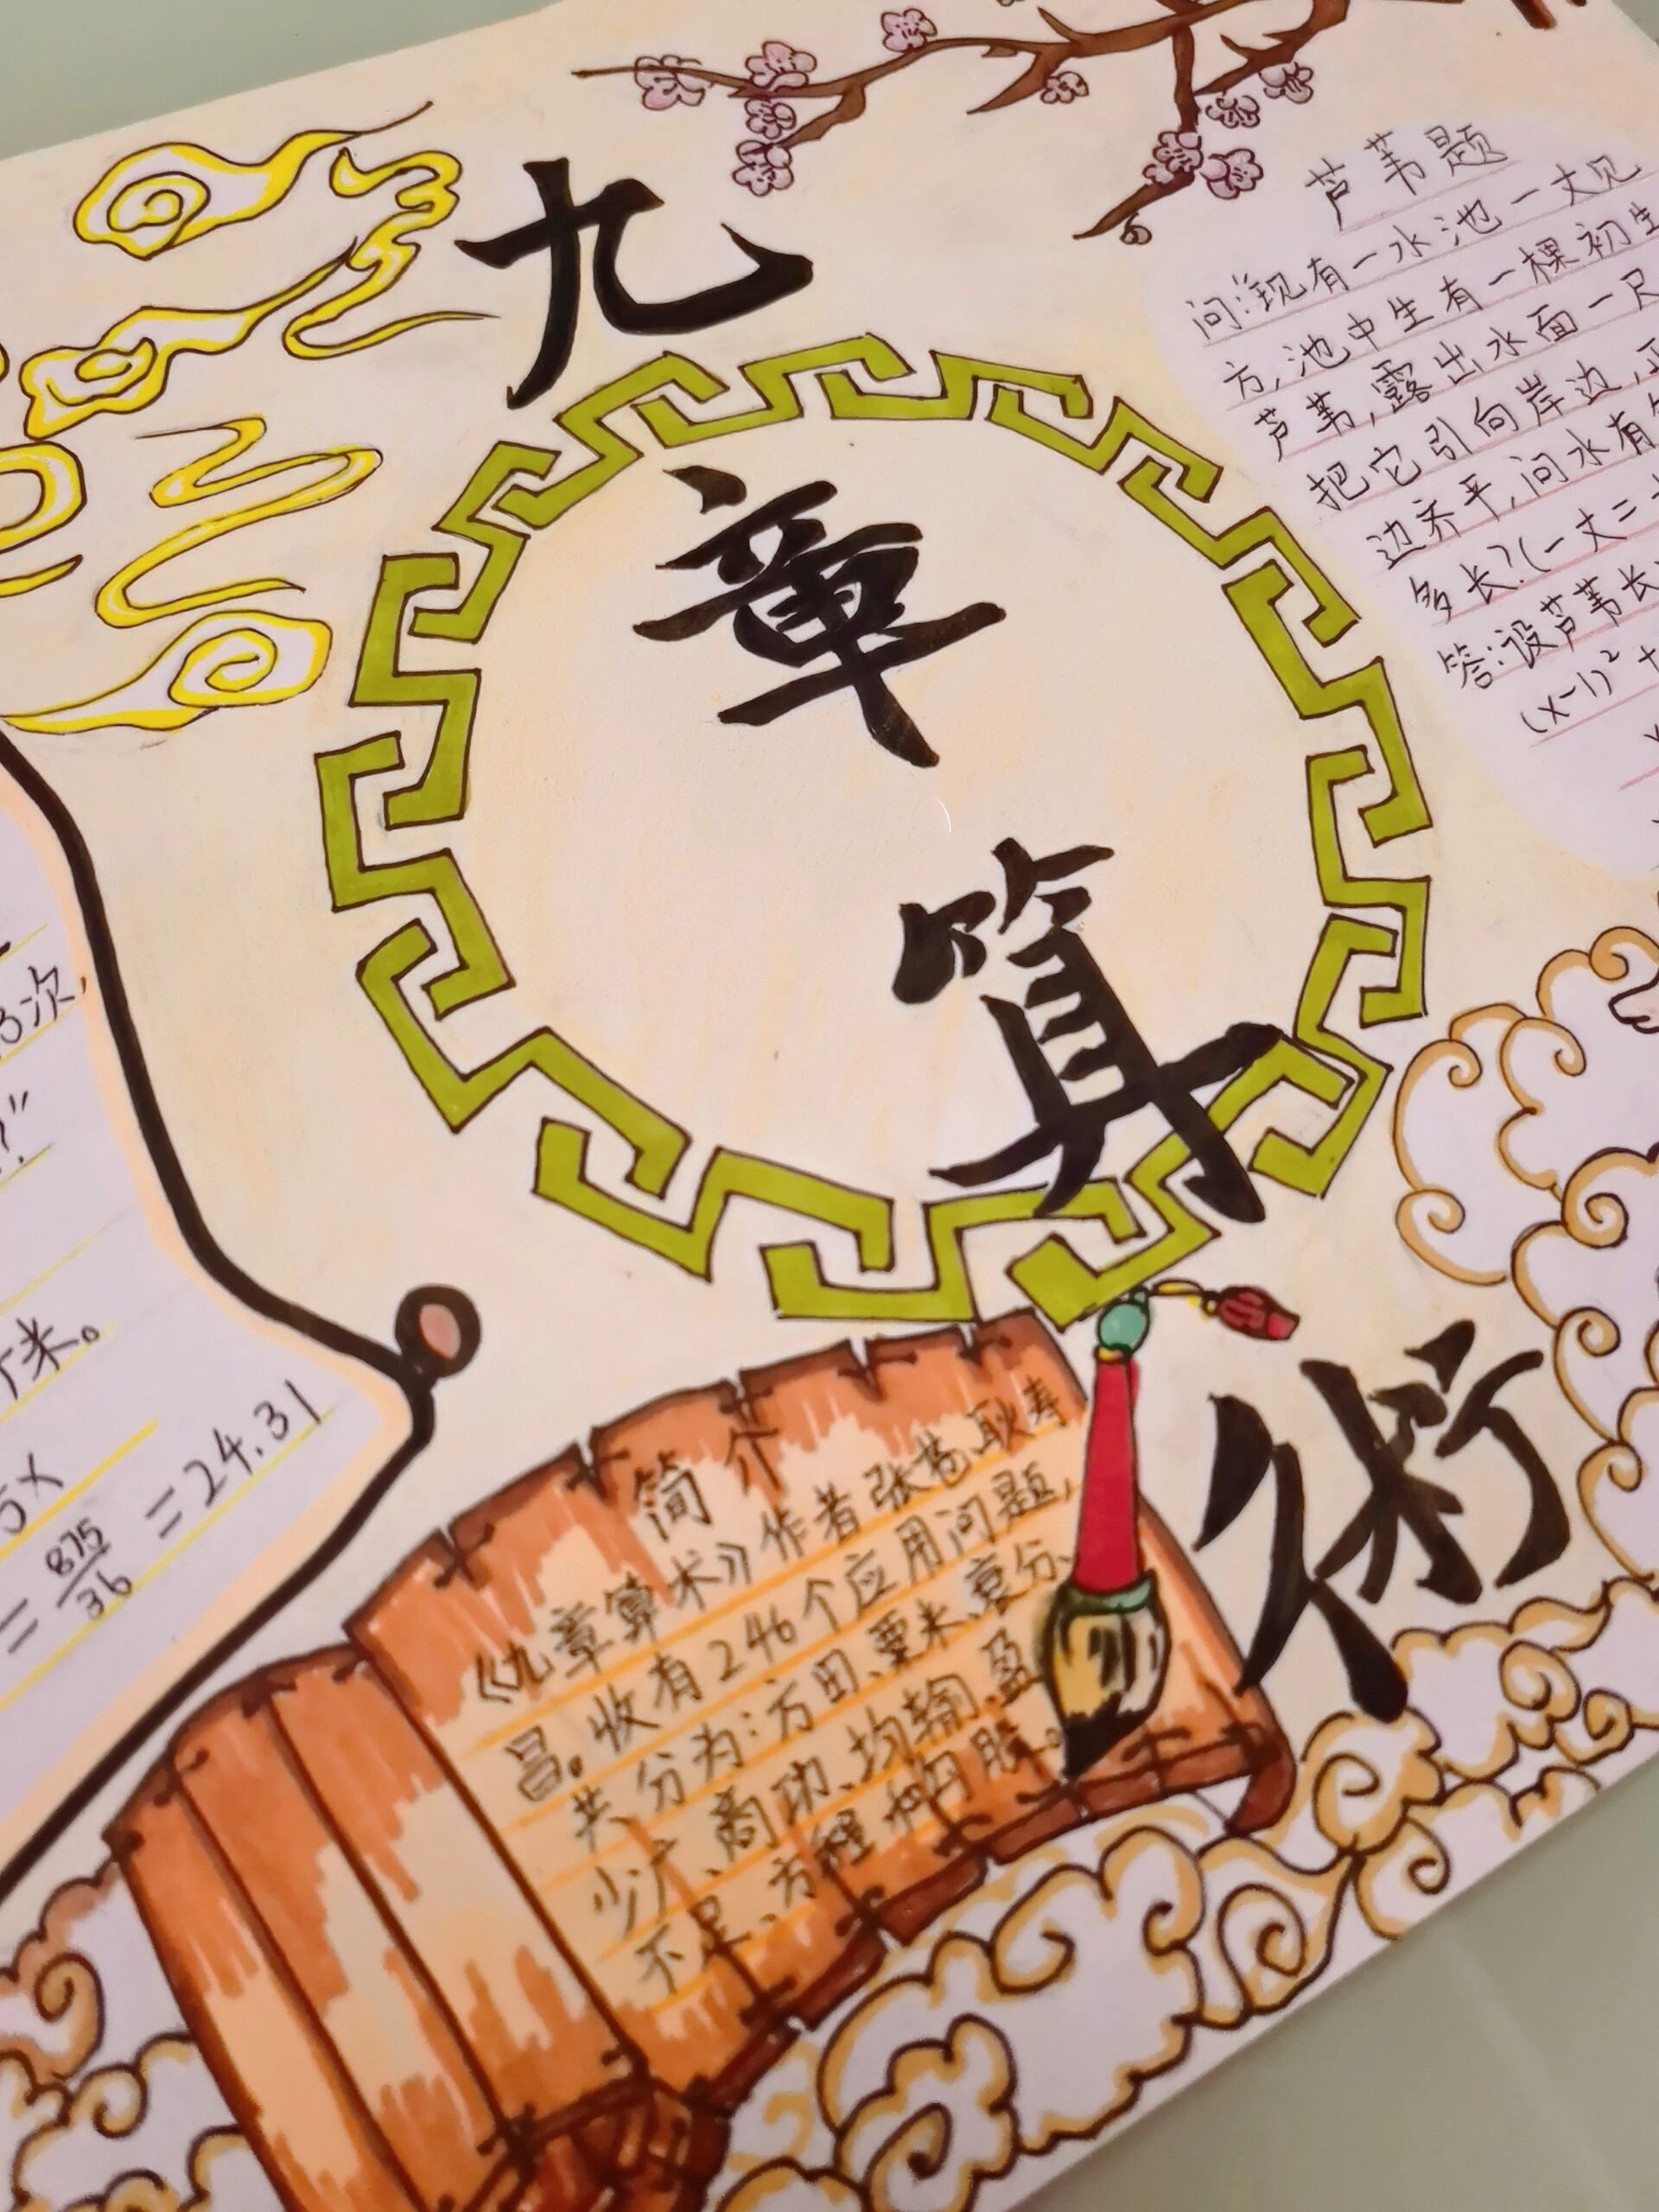 九
章
算
術
芦苇题
问:“现有一水池一丈见
方,池中生有一棵初生
芦苇,露出水面一尺
把它引向岸边,正
边齐平,问水有
多长?(一丈=
答:设芦苇长
(x-1)²+
次,
?”
米。
5x
=875/36=24.31
简介
《九章算术》作者张苍、耿寿
昌。收有246个应用问题,
共分为:方田、粟米、衰分、
少广、商功、均输、盈
不足、方程和勾股。